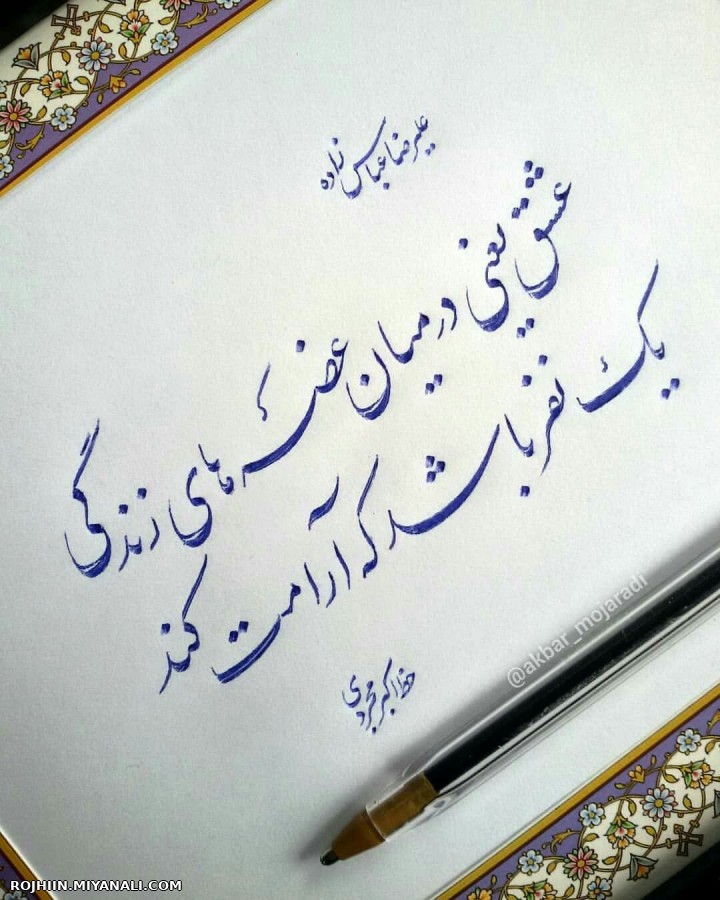 علیرضا عباس زاده
عشق یعنی در میان غصه های زندگی
یک نفر باشد که آرامت کند
خط اکبر مجردی
@akbar_mojaradi
ROJHIIN.MIYANALI.COM